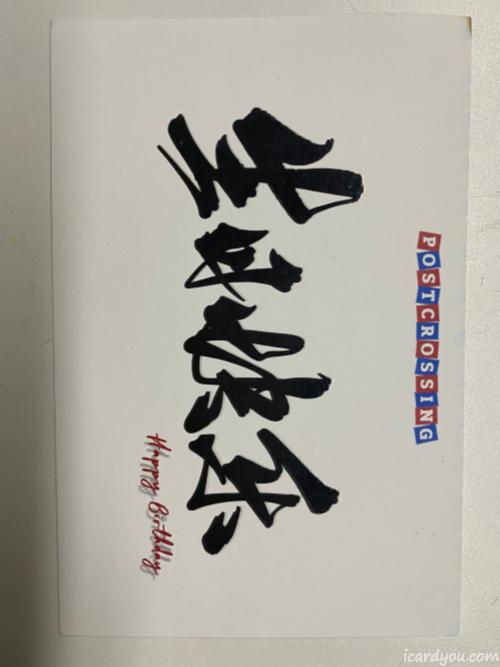 POSTCROSSING
生日快乐
Happy Birthday
icardyou.com